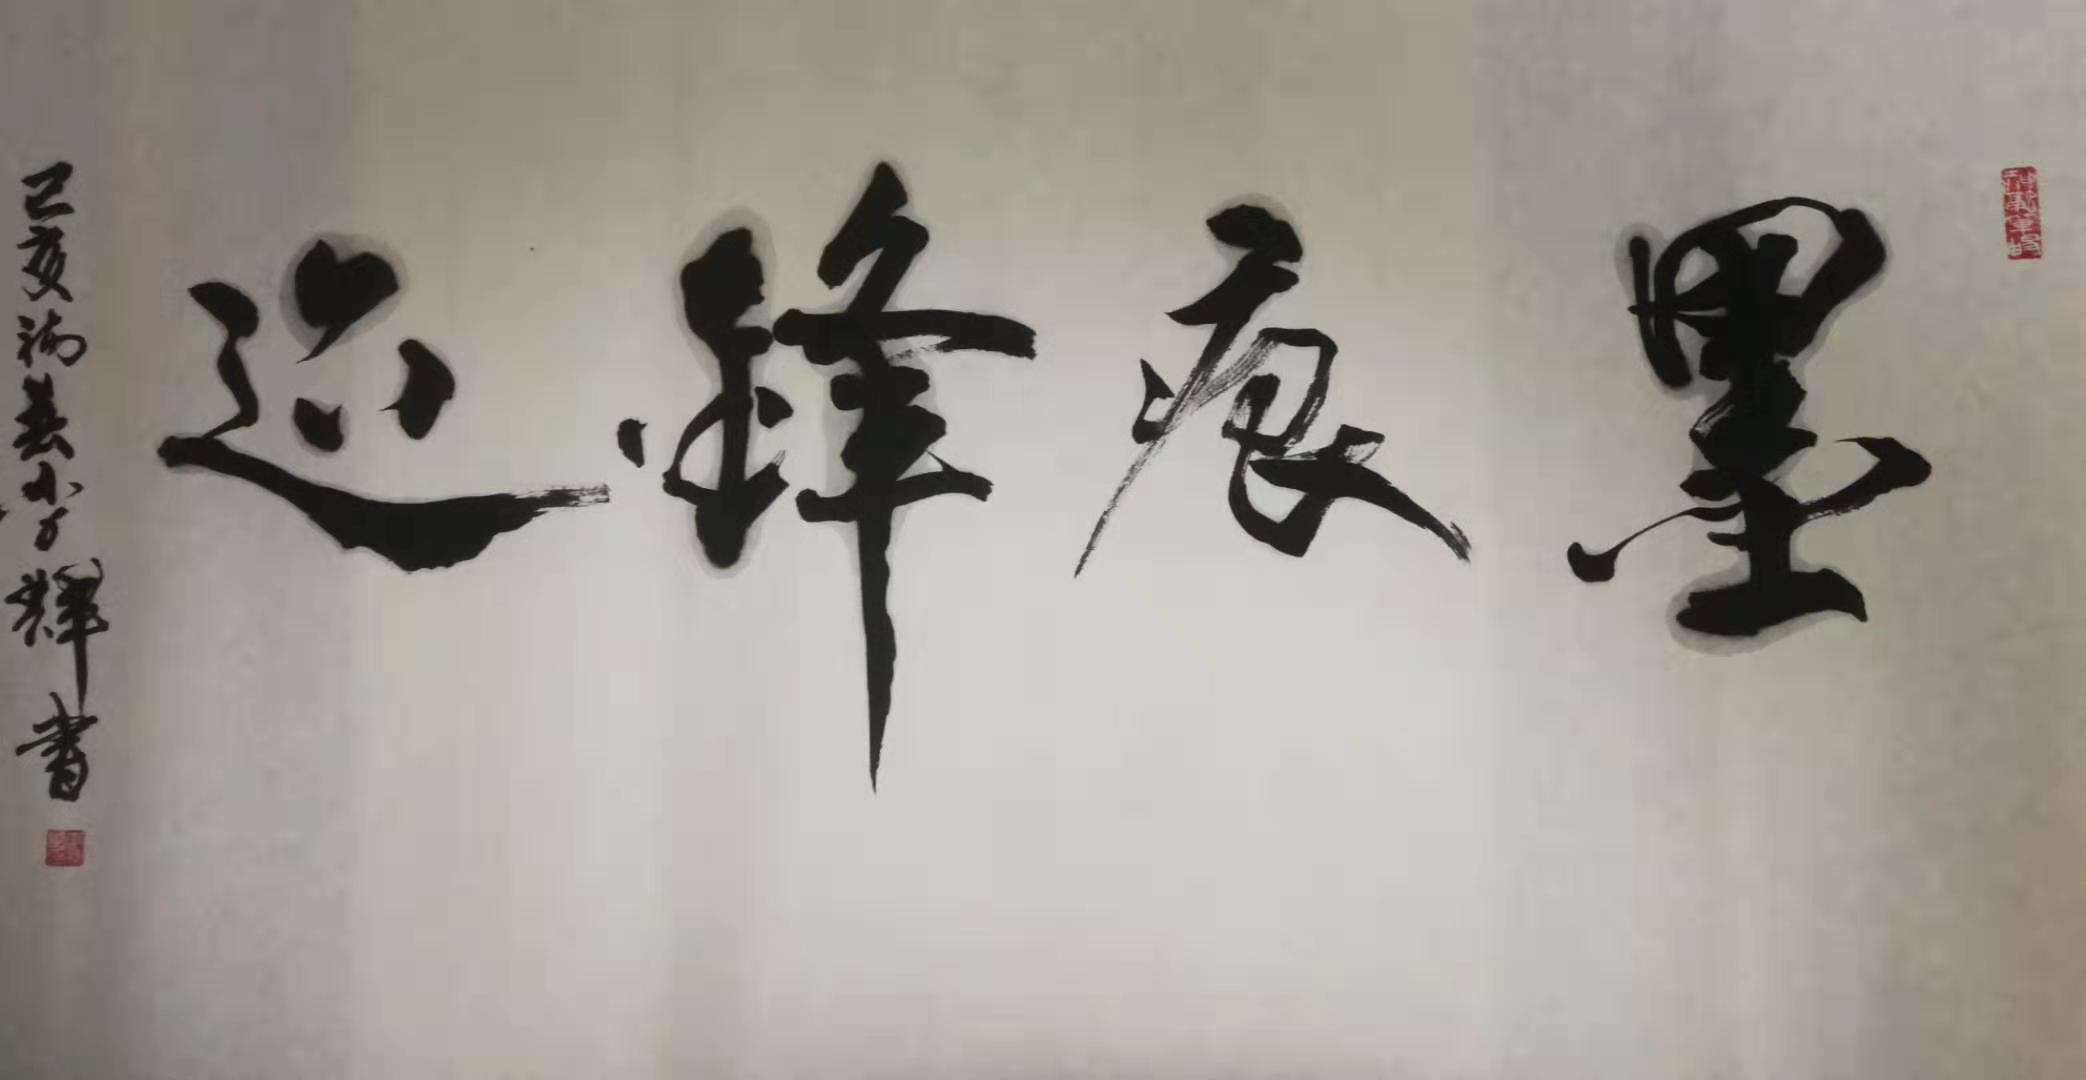 墨痕鋒迹
己亥初春小方輝書